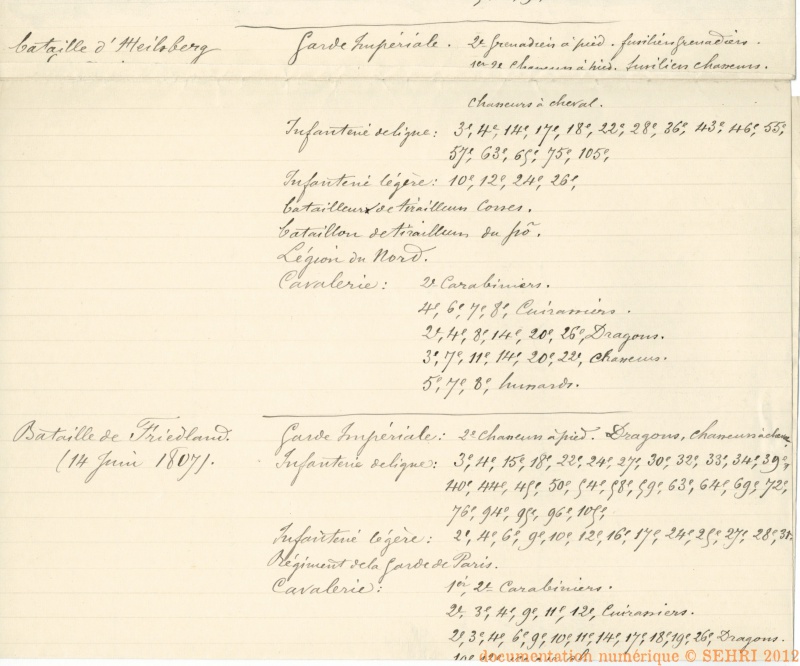 Bataille d'Heilsberg Garde Impériale. 2e Grenadiers à pied. fusiliers Grenadiers.
1er 2e Chasseurs à pied. fusiliers Chasseurs.
Chasseurs à cheval.
Infanterie de ligne: 3e, 4e, 14e, 17e, 18e, 22e, 28e, 36e, 43e, 46e, 55e,
57e, 63e, 65e, 75e, 105e,
Infanterie légère: 10e, 12e, 24e, 26e,
de tirailleurs Corses.
Bataillon de tirailleurs du Pô.
Légion du Nord.
Cavalerie: 2e Carabiniers.
4e, 6e, 7e, 8e, Cuirassiers.
2e, 4e, 8e, 14e, 20e, 26e, Dragons.
3e, 7e, 11e, 14e, 20e, 22e, Chasseurs.
5e, 7e, 8e, hussards.
Bataille de Friedland. Garde Impériale: 2e Chasseurs à pied. Dragons, Chasseurs à cheval.
(14 Juin 1807). Infanterie de ligne: 3e, 4e, 15e, 18e, 22e, 24e, 27e, 30e, 32e, 33e, 34e, 39e,
40e, 44e, 45e, 50e, 54e, 58e, 59e, 63e, 64e, 69e, 72e,
76e, 94e, 95e, 96e, 105e,
Infanterie légère: 2e, 4e, 6e, 9e, 10e, 12e, 16e, 17e, 24e, 25e, 27e, 28e, 31e
Régiment de la Garde de Paris.
Cavalerie: 1er, 2e Carabiniers.
2e, 3e, 4e, 9e, 11e, 12e, Cuirassiers.
2e, 3e, 4e, 6e, 9e, 10e, 11e, 14e, 17e, 18e, 19e, 26e, Dragons.
documentation numérique © SEHRI 2012